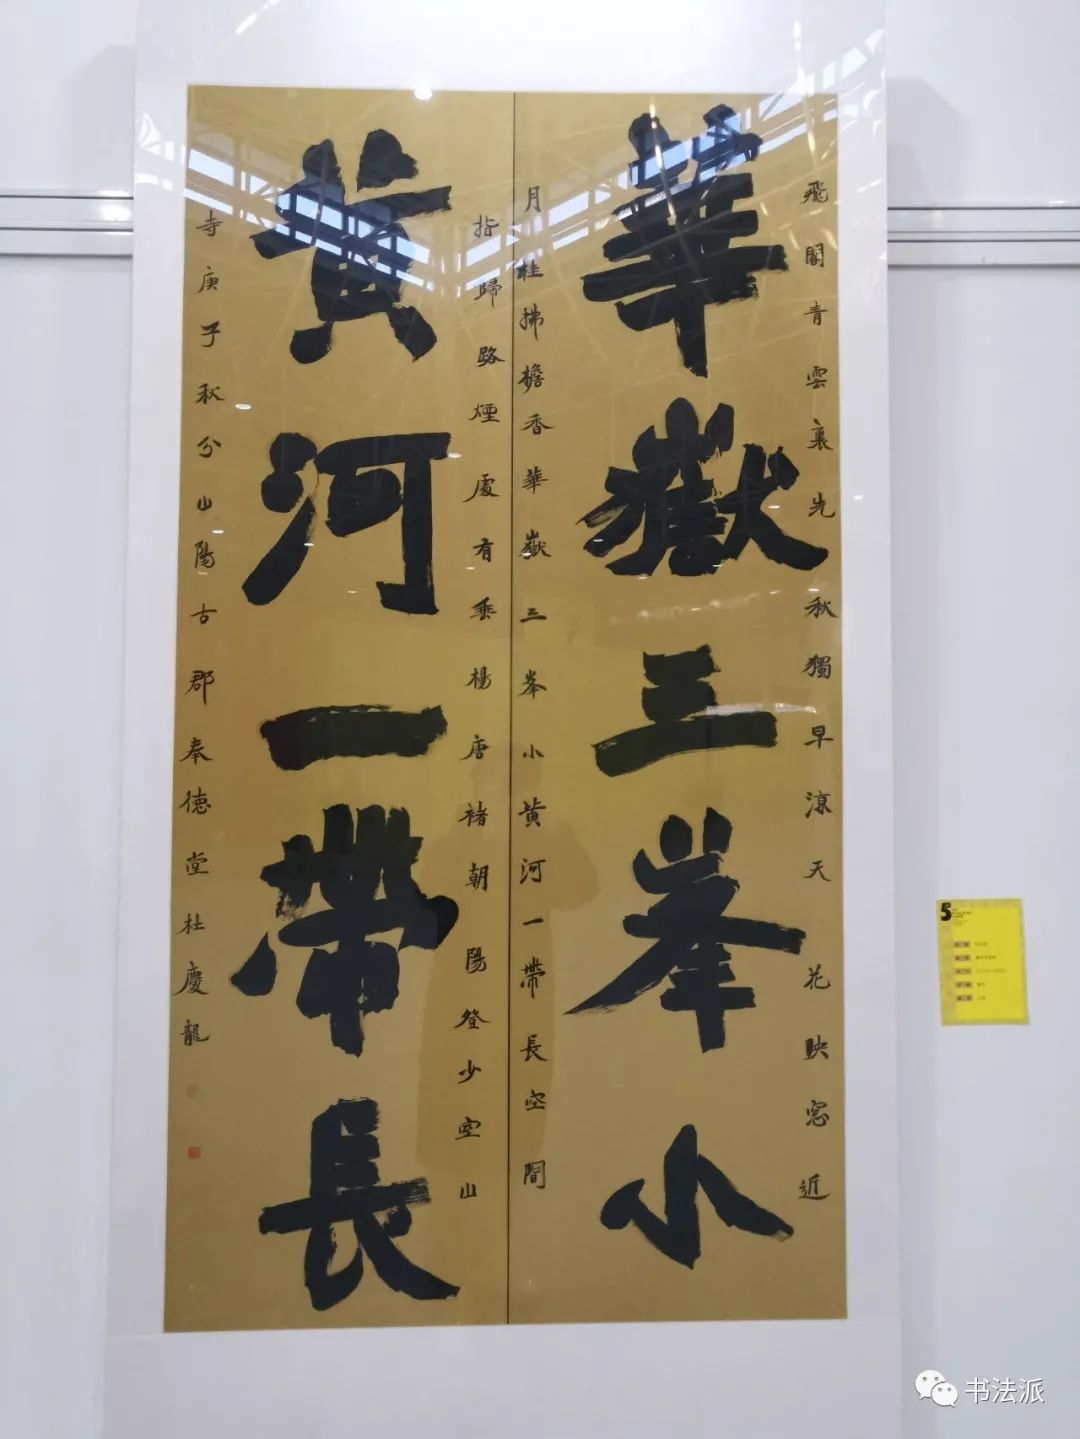 華嶽三峯小
黄河一帶長
飛閣青雲裏先秋獨早涼天花映窓近
月桂拂檐香華嶽三峯小黄河一帶長空間
指歸路煙處有垂楊唐褚朝陽登少室山
寺庚子秋分山陽古郡奉德堂杜慶龍
5
书法派